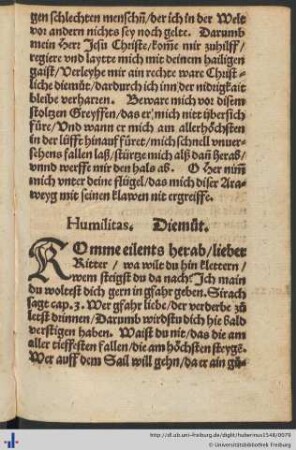 gen schlechten menschñ/der ich in der Welt
vor andern nichts sey noch gelte. Darumb
mein Herr Jesu Christe/kom̃e mir zuhilff/
regiere vnd laytte mich mit deinem hailigen
gaist/Verleyhe mir ain rechte ware Christ-
liche diemůt/dardurch ich inn der nidrigkait
bleibe verharren. Beware mich vor disem
stoltzen Greyffen/das er mich nitt übersich
füre/Vnd wann er mich am allerhöchsten
in der lüfft hinauf füret/mich schnell vnuer-
sehens fallen laß/stürtze mich alß dañ herab/
vnnd werffe mir den hals ab. O Herr nim̃
mich vnter deine flügel/das mich diser Ara-
weyg mit seinen klawen nit ergreiffe.
Humilitas. Diemůt.
Komme eilents herab/lieber
Ritter/wa wilt du hin klettern/
wem steigst du da nach? Ich main
du woltest dich gern in gfahr geben. Sirach
sagt cap. 3. Wer gfahr liebt/der verderbe zů
letst drinnen/Darumb wirdstu dich hie bald
verstigen haben. Waist du nit/das die am
aller tieffesten fallen/die am höchsten steygẽ.
Wer auff dem Sail will gehn/da er ain gů-
http://dl.ub.uni-freiburg.de/diglit/hubertinus1546/0079
© Universitätsbibliothek Freiburg